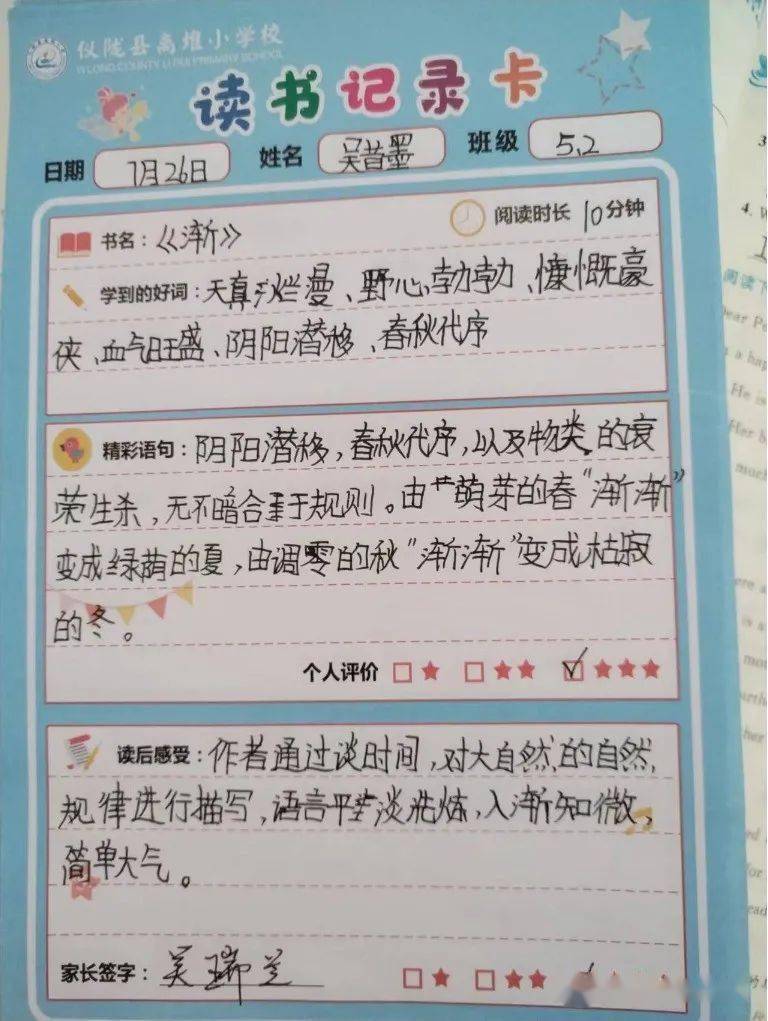 仪陇县离堆小学校
YI LONG COUNTY LI DUI PRIMARY SCHOOL
读书记录卡
日期 7月26日 姓名 吴昔墨 班级 5.2
书名：《渐》 阅读时长 10分钟
学到的好词：天真烂漫、野心勃勃、慷慨豪
侠、血气旺盛、阴阳潜移、春秋代序
精彩语句：阴阳潜移，春秋代序，以及物类的衰
荣生杀，无不暗合于规则。由萌芽的春“渐渐”
变成绿荫的夏，由调零的秋“渐渐”变成枯寂
的冬。
个人评价
读后感受：作者通过谈时间，对大自然的自然
规律进行描写，语言平淡洗炼，入渐知微，
简单大气。
家长签字：吴瑞兰